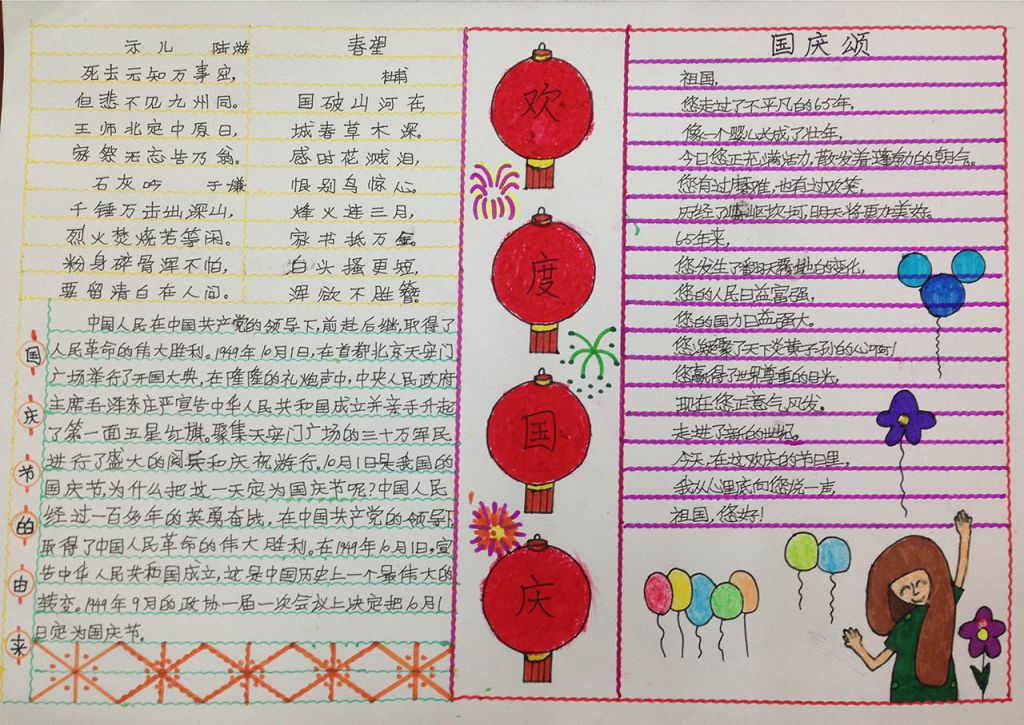 示儿 陆游
死去元知万事空,
但悲不见九州同。
王师北定中原日,
家祭无忘告乃翁。
石灰吟 于谦
千锤万击出深山,
烈火焚烧若等闲。
粉身碎骨浑不怕,
要留清白在人间。
春望
杜甫
国破山河在,
城春草木深。
感时花溅泪,
恨别鸟惊心。
烽火连三月,
家书抵万金。
白头搔更短,
浑欲不胜簪。
国庆节的由来
中国人民在中国共产党的领导下,前赴后继,取得了
人民革命的伟大胜利。1949年10月1日,在首都北京天安门
广场举行了开国大典,在隆隆的礼炮声中,中央人民政府
主席毛泽东庄严宣告中华人民共和国成立并亲手升起
了第一面五星红旗。聚集天安门广场的三十万军民
进行了盛大的阅兵和庆祝游行。10月1日是我国的
国庆节,为什么把这一天定为国庆节呢?中国人民
经过一百多年的英勇奋战,在中国共产党的领导下
取得了中国人民革命的伟大胜利。在1949年10月1日,宣
告中华人民共和国成立,这是中国历史上一个最伟大的
转变。1949年9月的政协一届一次会议上决定把10月1
日定为国庆节。
欢
度
国
庆
国庆颂
祖国,
您走过了不平凡的65年,
像一个婴儿长成了壮年,
今日您正充满活力,散发着蓬勃的朝气。
您有过磨难,也有过欢笑,
历经了崎岖坎坷,明天将更加美好。
65年来,
您发生了翻天覆地的变化,
您的人民日益富强,
您的国力日益强大。
您凝聚了天下炎黄子孙的心啊!
您赢得了世界尊重的目光,
现在您正意气风发,
走进了新的世纪。
今天,在这欢庆的节日里,
我从心里底向您说一声,
祖国,您好!